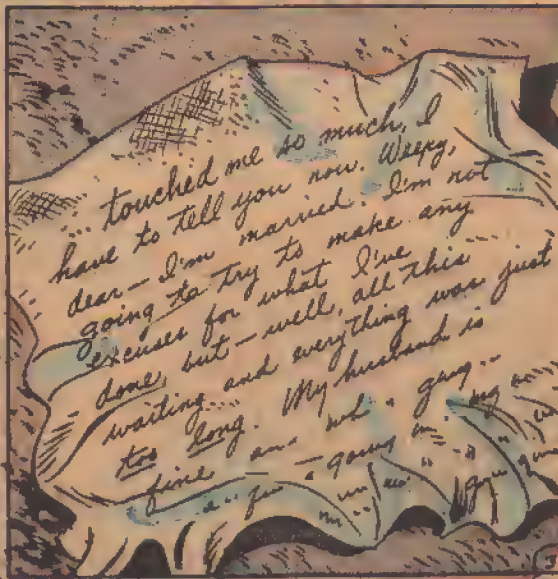 ... touched me so much, I
have to tell you now. Weepy,
dear — I'm married. I'm not
going to try to make any
excuses for what I've
done, but — well, all this
waiting and everything was just
too long. My husband is
fine and guy...
going